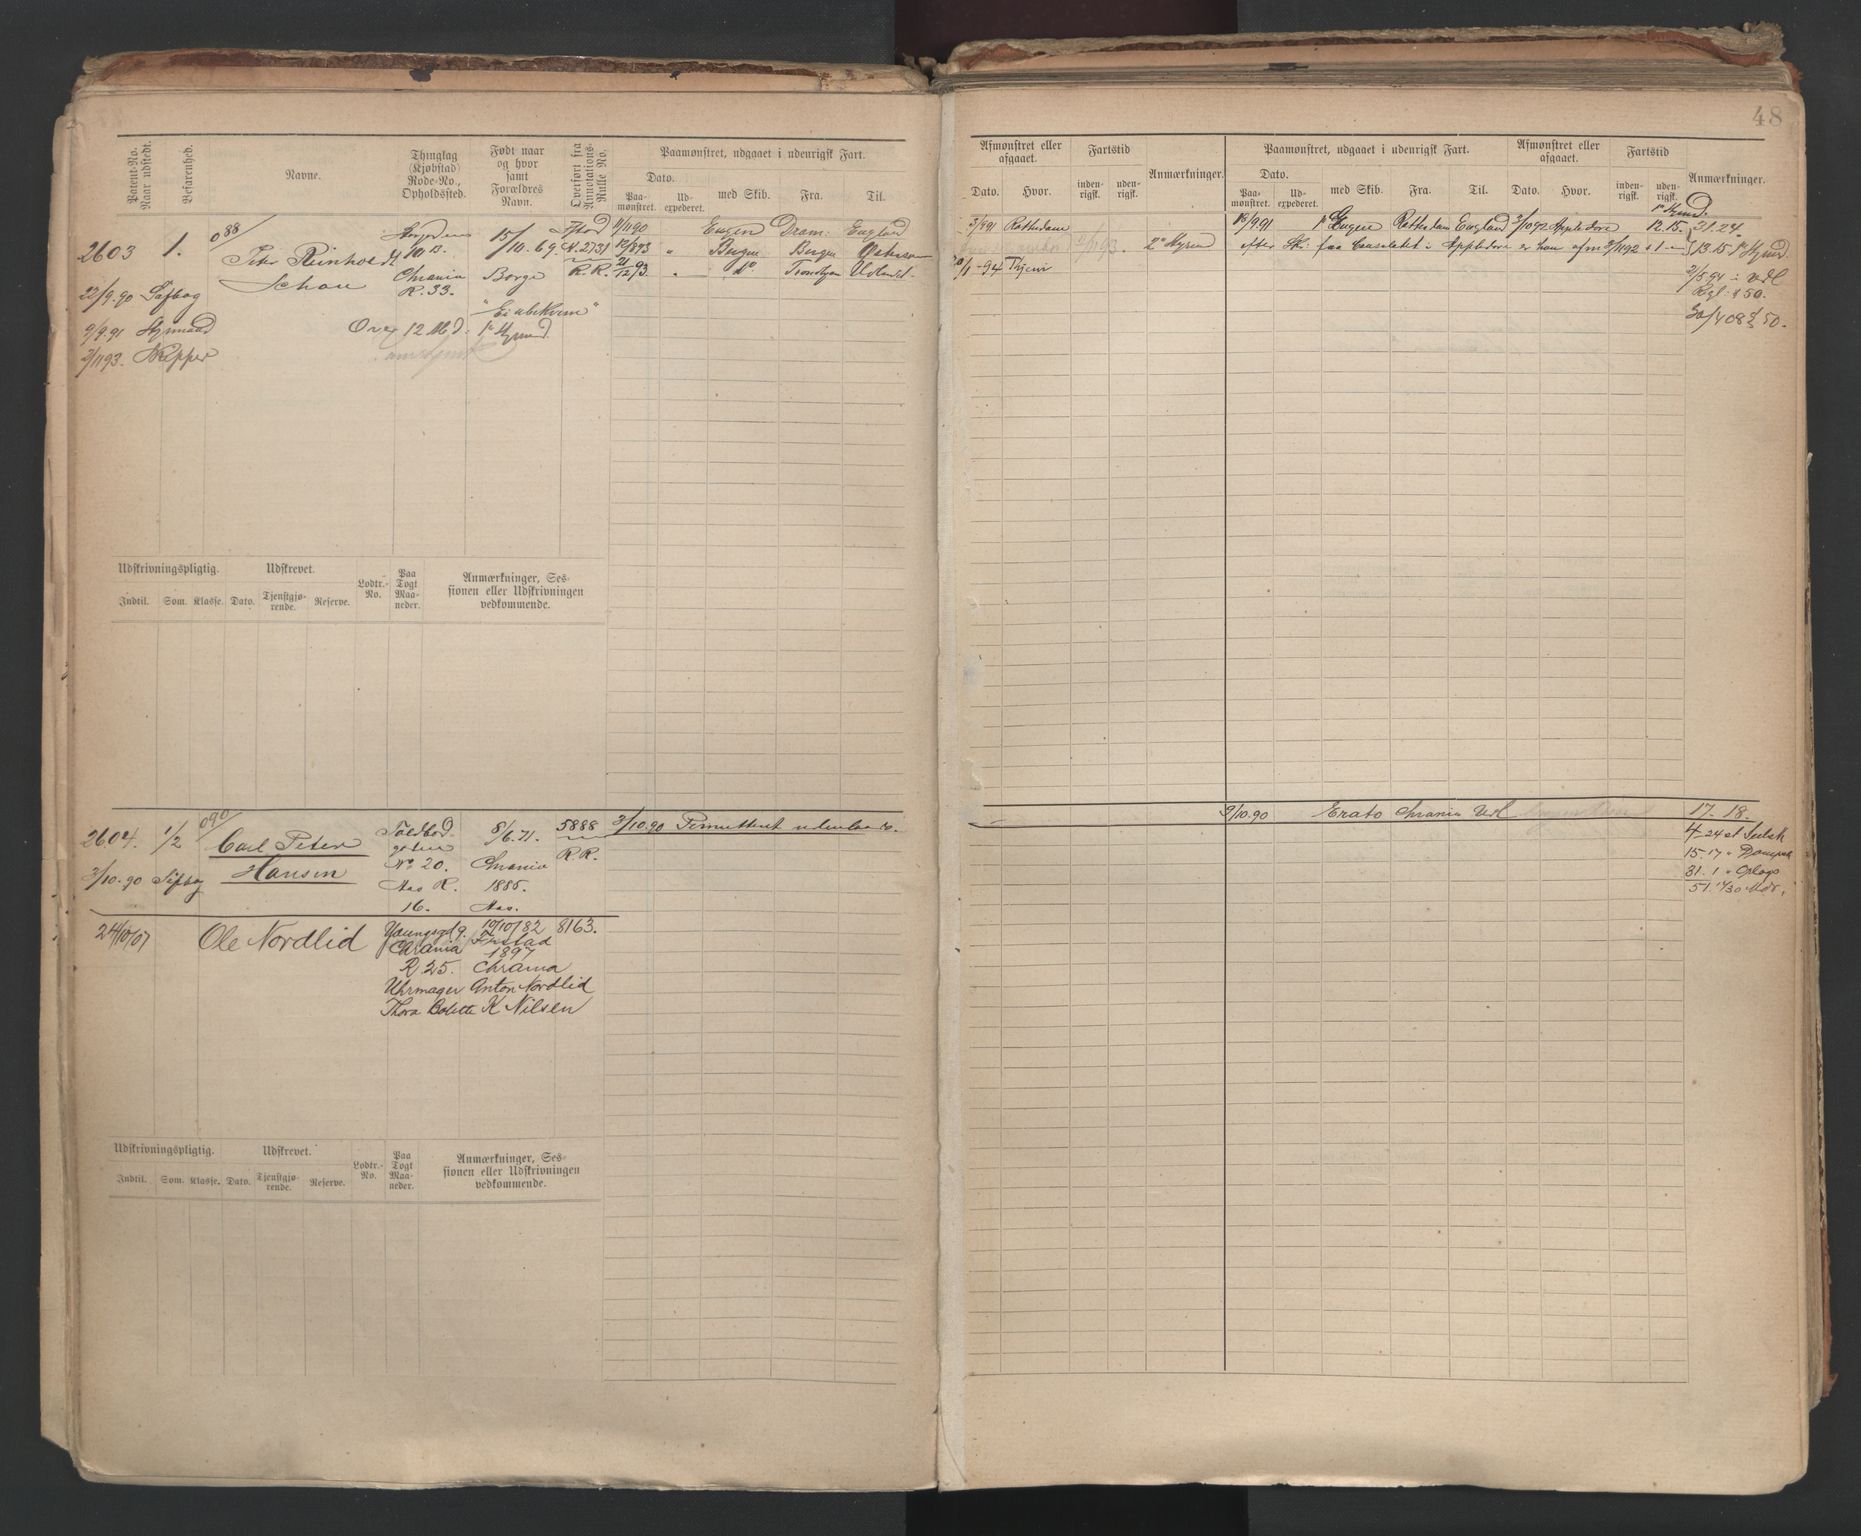 48
Patent-No. Naar udstedt.
Befarenhed.
Navne.
Thinglag (Kjøbstad) Rode-No., Opholdssted.
Født naar og hvor samt Forældres Navn.
Overført fra Annotations-Rulle No.
Paamønstret, udgaaet i udenrigsk Fart.
Dato.
Paamønstret.
Udexpederet.
med Skib.
Fra.
Til.
Afmønstret eller afgaaet.
Dato.
Hvor.
Fartstid
indenrigsk.
udenrigsk.
Anmærkninger.
Paamønstret, udgaaet i udenrigsk Fart.
Dato.
Paamønstret.
Udexpederet.
med Skib.
Fra.
Til.
Afmønstret eller afgaaet.
Dato.
Hvor.
Fartstid
indenrigsk.
udenrigsk.
Anmærkninger.
088
2603 1. Peter Reinholdt Schou
10 B. Chrania R. 33.
15/10.69. Borge
N. 2731 R. R.
22/9.90 Søfbog
9/9.91 Styrmand
2/1193. Skipper
Over 12 Md. 1ste Styrmd.
1/1190 Eugen Dram. England
12/893 " Bergen Bergen Østersøen
21/12 93. " Do Trondhjem Udlandet.
3/991 Rotterdam
30/1-94 Thjem
2den Styrmd
18/9.91 Eugen Rotterdam England 3/1092 Appledore 12.15.
efter Sk. fra Consulatet i Appledore er han afm 3/1192
31.24.
13.15 1ste Styrmd.
2/5 94
30/4 08 50.
Udskrivningspligtig.
Indtil. Som. Klasse.
Udskrevet.
Dato. Tjenstgjørende. Reserve.
Lodtr.-No.
Paa Togt Maaneder.
Anmærkninger, Sessionen eller Udskrivningen vedkommende.
090
2604. 1/2 Carl Peter Hansen
Toldbodgaden No 20. Aas R. 16.
8/6.71. Chrania 1885. Aas.
5888 R. R.
3/10.90 Søfbog
3/10.90 Permitteret udenlands.
9/10.90 Erato Chrania Udl
17. 18.
4 24 at Seilsk
15. 17 " Dampsk
31. 1 " Oplags
24/10/07 Ole Nordlid
Youngsgd 9. Chrania R. 25.
19/10/82 1897 Chrania
8163.
Uhrmager Anton Nordlid
Thora Bolette K Nilsen
Udskrivningspligtig.
Indtil. Som. Klasse.
Udskrevet.
Dato. Tjenstgjørende. Reserve.
Lodtr.-No.
Paa Togt Maaneder.
Anmærkninger, Sessionen eller Udskrivningen vedkommende.